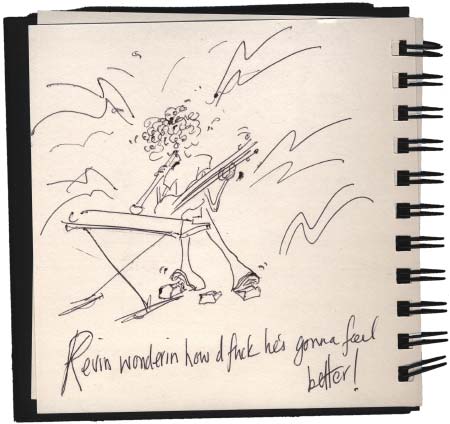 Kevin wonderin how d fuck he's gonna feel
better!